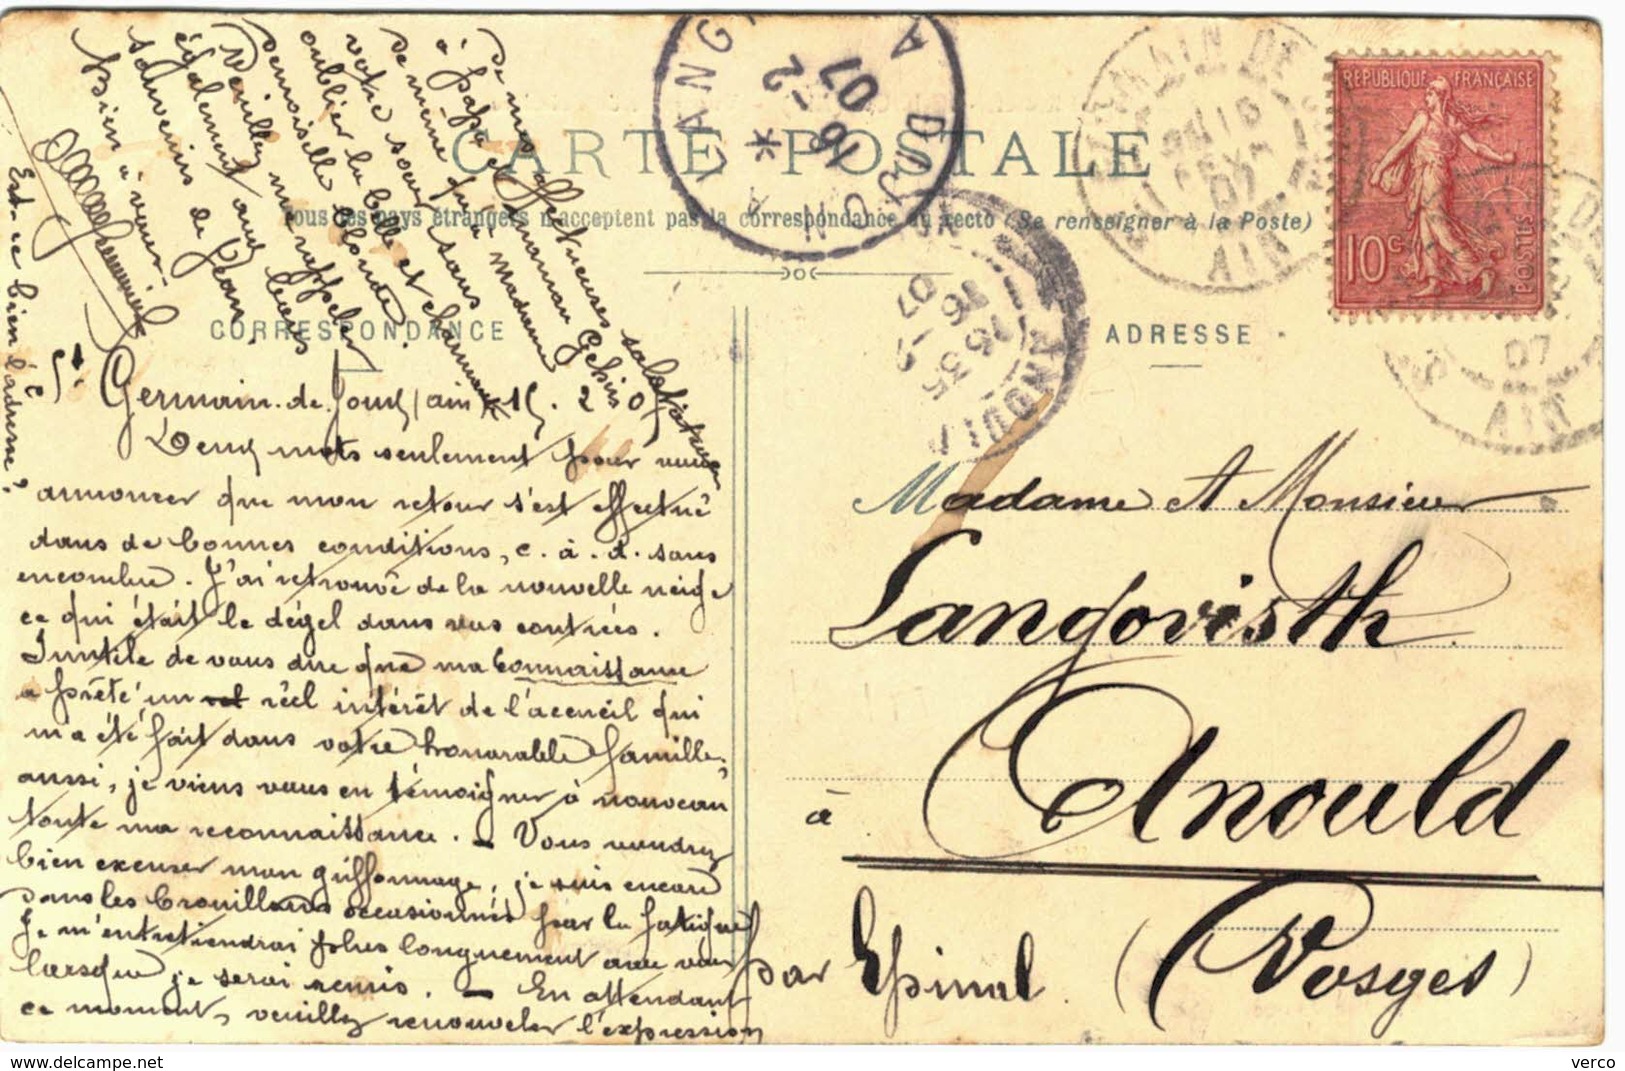 CARTE POSTALE
Tous les pays étrangers n'acceptent pas la correspondance au recto (Se renseigner à la Poste)
CORRESPONDANCE
ADRESSE
REPUBLIQUE FRANÇAISE
10c
POSTES
ANOULD
16 -2 07
AIN
07
St Germain-de-Joux (ain) 15. 2 07
Deux mots seulement pour vous
annoncer que mon retour s'est effectué
dans de bonnes conditions, c. à. d. sans
encombre. J'ai retrouvé de la nouvelle neige
ce qui était le dégel dans vos contrées.
Inutile de vous dire que ma connaissance
a prêté un réel intérêt de l'accueil qui
m'a été fait dans votre honorable famille,
aussi, je viens vous en témoigner à nouveau
toute ma reconnaissance. - Vous voudrez
bien excuser mon griffonnage, je suis encore
dans les brouillards occasionnés par la fatigue
Je m'entretiendrai plus longuement avec vous
lorsque je serai remis. - En attendant
ce moment, veuillez renouveler l'expression
de mes affectueuses salutations
à papa et maman Gehin
de même qu'à Madame
votre sœur sans
oublier la belle et charmante
demoiselle blonde
Veuillez me rappeler
également aux bons
souvenirs de Jean
Bien à vous
Est-ce bien l'adresse?
Madame et Monsieur
Langovisth
à Anould
par Epinal (Vosges)
verco